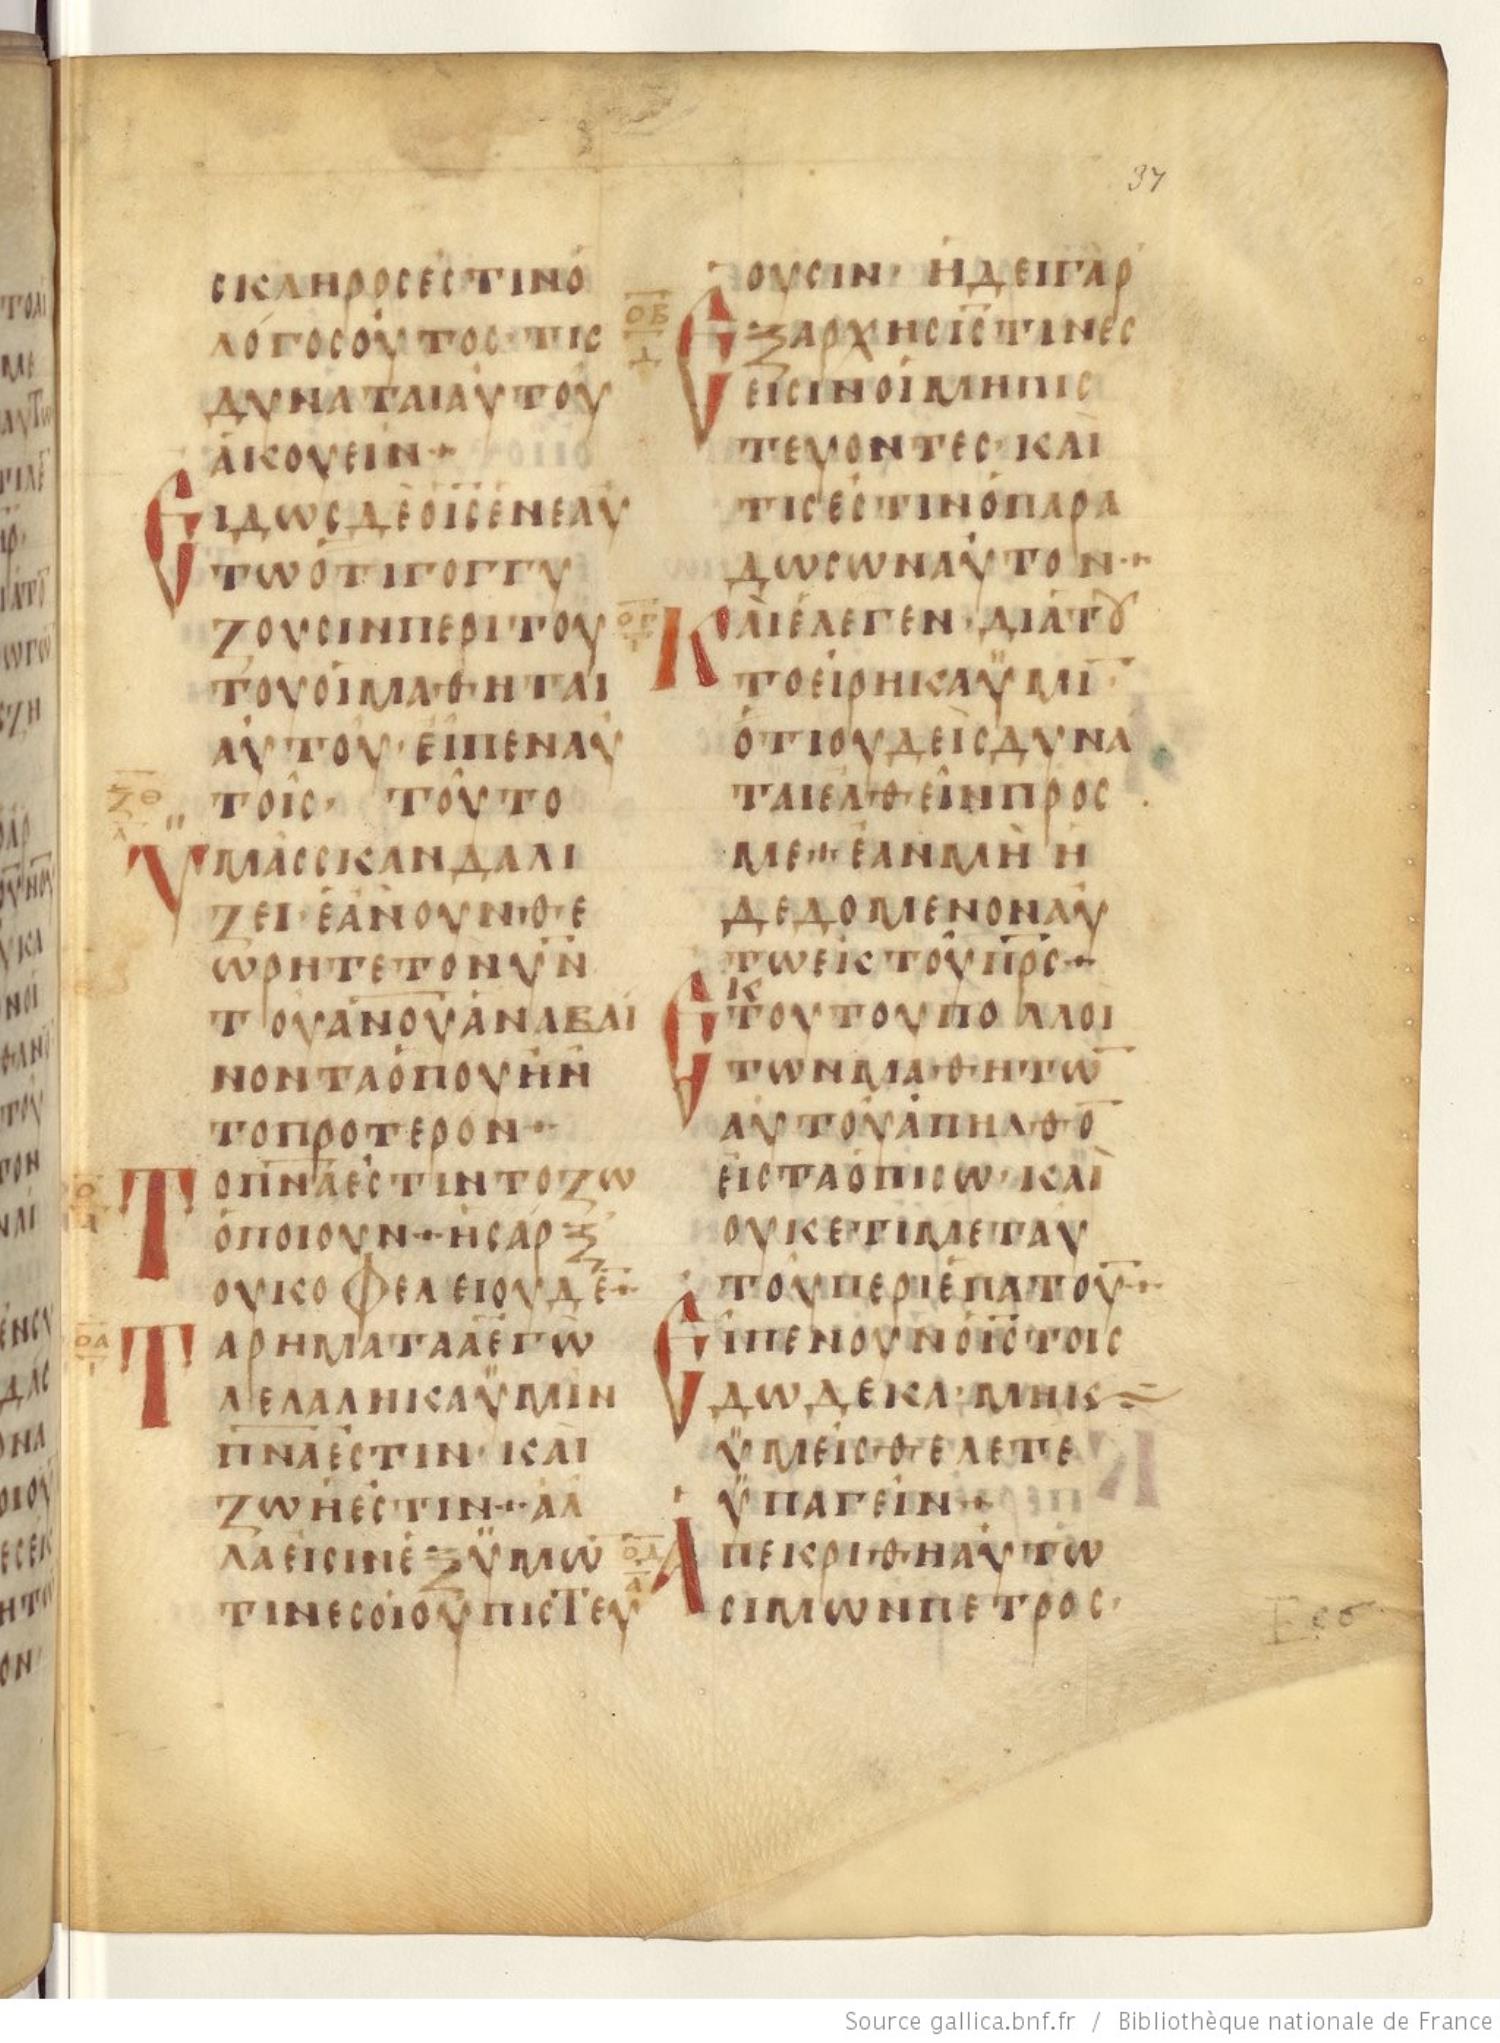 37
ϲκληροϲεϲτινο
λογοϲουτοϲ·τιϲ
δυναταιαυτου
ακουειν·
Ειδωϲδεοι̅ϲ̅ενεαυ
τωοτιγογγυ
ζουϲινπεριτου
τουοιμαθηται
αυτου·ειπεναυ
τοιϲ· τουτο
Ϋμαϲϲκανδαλι
ζει·εανουνθε
ωρητετονυ̅ν̅
τουα̅ν̅ο̅υ̅αναβαι
νονταοπουην
τοπροτερον·
Τοπ̅ν̅α̅εϲτιντοζω
οποιουν·ηϲαρξ
ουκοφελειουδε̅·
Ταρηματααεγω
λελαληκαϋμιν
π̅ν̅α̅εϲτιν·και
ζωηεϲτιν·αλ
λαειϲινεξϋμω̅
τινεϲοιουπιϲτευ
ουϲιν· ηδειγαρ
Εξαρχηϲι̅ϲ̅τινεϲ
ειϲινοιμηπιϲ
τευοντεϲ·και
τιϲεϲτινοπαρα
δωϲωναυτον·
Καιελεγεν·διατȣ
τοειρηκαϋμι̅·
οτιουδειϲδυνα
ταιελθεινπροϲ
με·εανμη η
δεδομενοναυ
τωεικτουπ̅ρ̅ϲ̅·
Εκ
τουτουπολλοι
τωνμαθητω̅
αυτουαπηλθο̅
ειϲταοπιϲω·και
ουκετιμεταυ
τουπεριεπατου̅·
Ειπενουνοι̅ϲ̅τοιϲ
δωδεκα·μηκ
ϋμειϲθελετε
ϋπαγειν·
Απεκριθηαυτω
ϲιμωνπετροϲ·
ξθ
α
ο
α
οα
ι
οβ
δ
ογ
ι
οδ
α
Source gallica.bnf.fr / Bibliothèque nationale de France